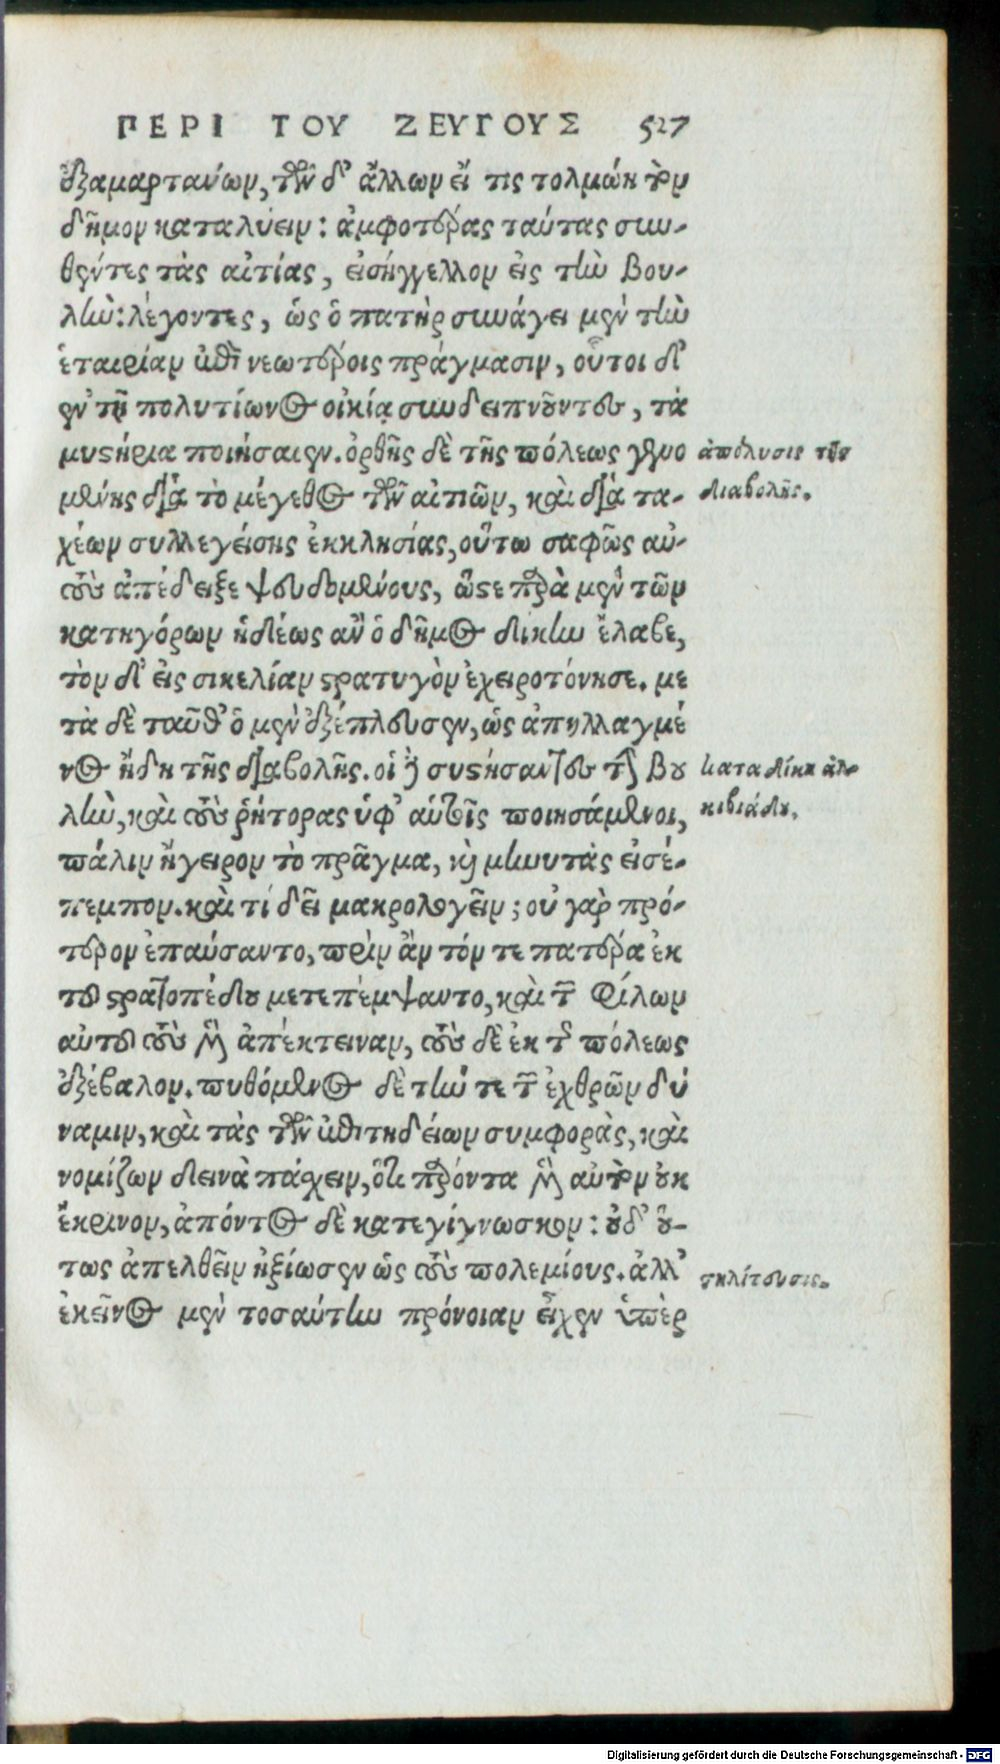 ΠΕΡΙ ΤΟΥ ΖΕΥΓΟΥΣ 527
ἐξαμαρτανόντων, τῶν δ' ἄλλων εἴ τις τολμῴη τὸν
δῆμον καταλύειν: ἀμφοτέρας ταύτας συν-
θέντες τὰς αἰτίας, εἰσήγγελλον εἰς τὴν βου-
λὴν: λέγοντες, ὡς ὁ πατὴρ συνάγει μὲν τὴν
ἑταιρίαν ἐπὶ νεωτέροις πράγμασιν, οὗτοι δ'
ἐν τῇ πολυτίωνος οἰκίᾳ συνδειπνοῦντες, τὰ
μυστήρια ποιήσαιεν. ὀρθῆς δὲ τῆς πόλεως γενο
μένης διὰ τὸ μέγεθος τῶν αἰτιῶν, καὶ διὰ τα-
χέων συλλεγείσης ἐκκλησίας, οὕτω σαφῶς αὐ-
τοὺς ἀπέδειξε ψευδομένους, ὥστε παρὰ μὲν τῶν
κατηγόρων ἡδέως ἂν ὁ δῆμος δίκην ἔλαβε,
τὸν δ' εἰς σικελίαν στρατηγὸν ἐχειροτόνησε. με
τὰ δὲ ταῦθ' ὁ μὲν ἐξέπλευσεν, ὡς ἀπηλλαγμέ
νος ἤδη τῆς διαβολῆς. οἱ δὲ συστήσαντες τὴν βου
λὴν, καὶ τοὺς ῥήτορας ὑφ' αὑτοῖς ποιησάμενοι,
πάλιν ἤγειρον τὸ πρᾶγμα, καὶ μηνυτὰς εἰσέ-
πεμπον. καὶ τί δεῖ μακρολογεῖν; οὐ γὰρ πρό-
τερον ἐπαύσαντο, πρὶν ἂν τόν τε πατέρα ἐκ
τοῦ στρατοπέδου μετεπέμψαντο, καὶ τῶν φίλων
αὐτοῦ τοὺς μὲν ἀπέκτειναν, τοὺς δὲ ἐκ τῆς πόλεως
ἐξέβαλον. πυθόμενος δὲ τήν τε τῶν ἐχθρῶν δύ
ναμιν, καὶ τὰς τῶν ἐπιτηδείων συμφορὰς, καὶ
νομίζων δεινὰ πάσχειν, ὅτι παρόντα μὲν αὐτὸν οὐκ
ἔκρινον, ἀπόντος δὲ κατεγίγνωσκον: οὐδ' οὕ-
τως ἀπελθεῖν ἠξίωσεν ὡς τοὺς πολεμίους. ἀλλ'
ἐκεῖνος μὲν τοσαύτην πρόνοιαν εἶχεν ὑπὲρ
ἀπόλυσις τῆς
διαβολῆς.
καταδίκη ἀλ-
κιβιάδου.